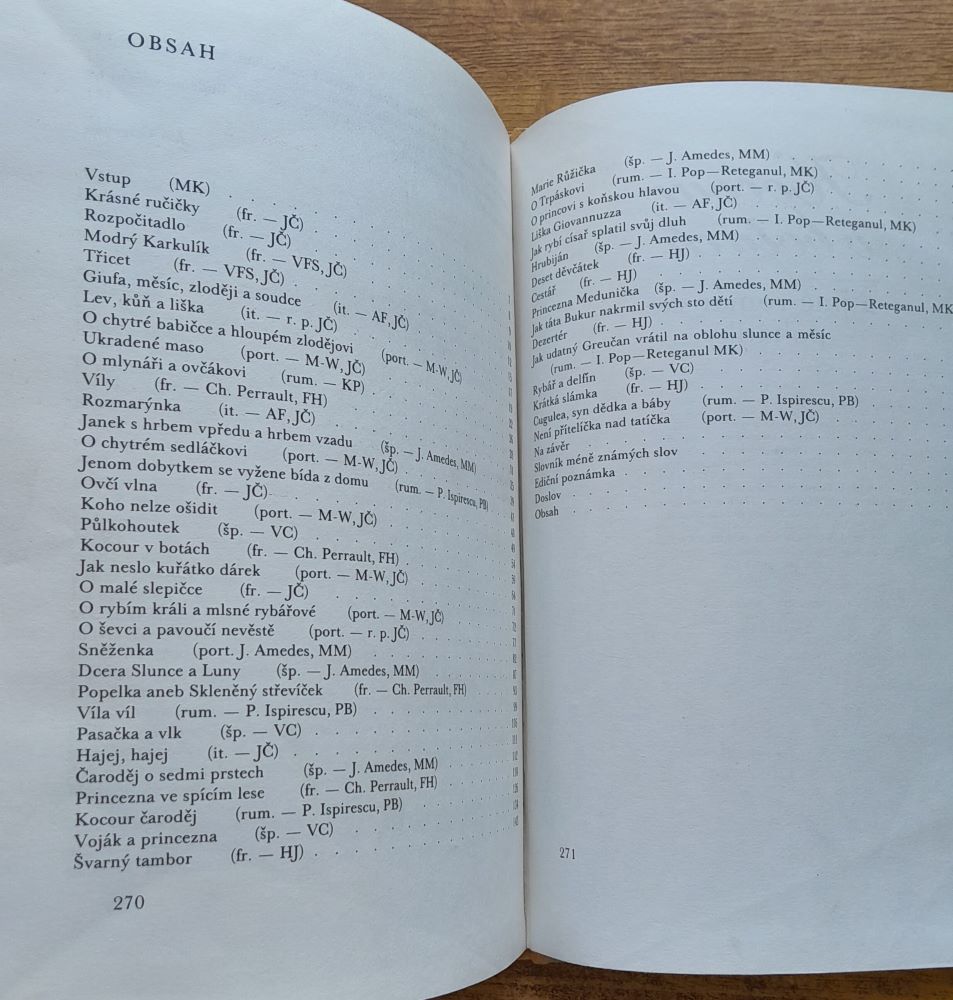 OBSAH
Vstup (MK)
Krásné ručičky (fr. — JČ)
Rozpočitadlo (fr. — JČ)
Modrý Karkulík (fr. — VFS, JČ)
Třicet (fr. — VFS, JČ)
Giufa, měsíc, zloději a soudce (it. — AF, JČ)
Lev, kůň a liška (it. — r. p. JČ)
O chytré babičce a hloupém zlodějovi (port. — M-W, JČ)
Ukradené maso (port. — M-W, JČ)
O mlynáři a ovčákovi (rum. — KP)
Víly (fr. — Ch. Perrault, FH)
Rozmarýnka (it. — AF, JČ)
Janek s hrbem vpředu a hrbem vzadu (šp. — J. Amedes, MM)
O chytrém sedláčkovi (port. — M-W, JČ)
Jenom dobytkem se vyžene bída z domu (rum. — P. Ispirescu, PB)
Ovčí vlna (fr. — JČ)
Koho nelze ošidit (port. — M-W, JČ)
Půlkohoutek (šp. — VC)
Kocour v botách (fr. — Ch. Perrault, FH)
Jak neslo kuřátko dárek (port. — M-W, JČ)
O malé slepičce (fr. — JČ)
O rybím králi a mlsné rybářové (port. — M-W, JČ)
O ševci a pavoučí nevěstě (port. — r. p. JČ)
Sněženka (port. J. Amedes, MM)
Dcera Slunce a Luny (šp. — J. Amedes, MM)
Popelka aneb Skleněný střevíček (fr. — Ch. Perrault, FH)
Víla víl (rum. — P. Ispirescu, PB)
Pasačka a vlk (šp. — VC)
Hajej, hajej (it. — JČ)
Čaroděj o sedmi prstech (šp. — J. Amedes, MM)
Princezna ve spícím lese (fr. — Ch. Perrault, FH)
Kocour čaroděj (rum. — P. Ispirescu, PB)
Voják a princezna (šp. — VC)
Švarný tambor (fr. — HJ)
270
Marie Růžička (šp. — J. Amedes, MM)
O Trpáskovi (rum. — I. Pop—Reteganul, MK)
O princovi s koňskou hlavou (port. — r. p. JČ)
Liška Giovannuzza (it. — AF, JČ)
Jak rybí císař splatil svůj dluh (rum. — I. Pop—Reteganul, MK)
Hrubiján (šp. — J. Amedes, MM)
Deset děvčátek (fr. — HJ)
Cestář (fr. — HJ)
Princezna Medunička (šp. — J. Amedes, MM)
Jak táta Bukur nakrmil svých sto dětí (rum. — I. Pop—Reteganul, MK
Dezertér (fr. — HJ)
Jak udatný Greučan vrátil na oblohu slunce a měsíc
(rum. — I. Pop—Reteganul MK)
Rybář a delfín (šp. — VC)
Krátká slámka (fr. — HJ)
Cugulea, syn dědka a báby (rum. — P. Ispirescu, PB)
Není přítelíčka nad tatíčka (port. — M-W, JČ)
Na závěr
Slovník méně známých slov
Ediční poznámka
Doslov
Obsah
271